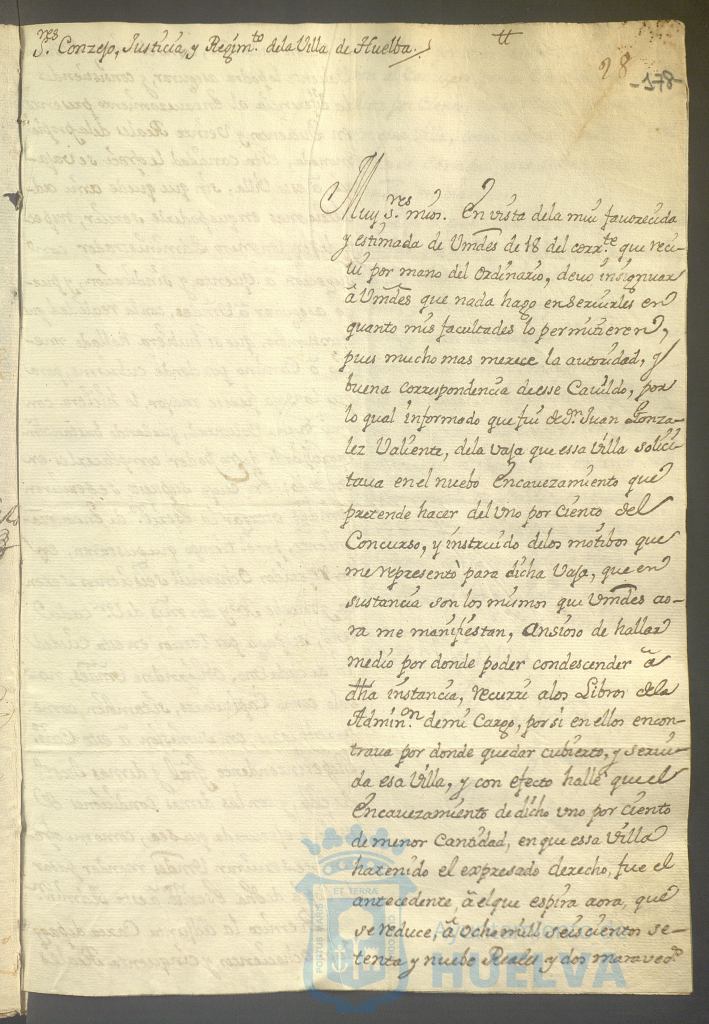 S.res Conzejo, Justicia, y Regim.to dela Villa de Huelba.
28
-178-
Muy S.res mios. En vista dela mui favorecida
y estimada de Vmdes de 18 del corr.te que reci-
ui por mano del ordinario, devo insignuar
â Vmdes que nada hago en Servirles en
quanto mis facultades lo permitieren,
pues mucho mas merece la autoridad, y
buena correspondencia de esse Cavildo, por
lo qual informado que fui de Dn. Juan Gonza-
lez Valiente, dela vaja que essa Villa solici-
tava en el nuebo Encavezamiento que
pretende hacer del Vno por Ciento del
Concurso, y instruido delos motibos que
me representò para dicha Vaja, que en
sustancia son los mismos que Vmdes ao-
ra me manifiestan, ansioso de hallar
medio por donde poder condescender â
dha instancia, recurri alos Libros dela
Admin.n de mi Cargo, por si en ellos encon-
trava por donde quedar cubierto, y servi-
da esa Villa, y con efecto hallè que el
Encavezamiento de dicho Vno por Ciento
de menor Cantidad, en que essa Villa
ha tenido el expresado derecho, fue el
antecedente, â el que espira aora, que
se reduce, â ocho mill seiscientos se-
tenta y nuebe Reales y dos maraved.s
PORTUS MARIS
ET TERRE
CUSTODIA
HUELVA